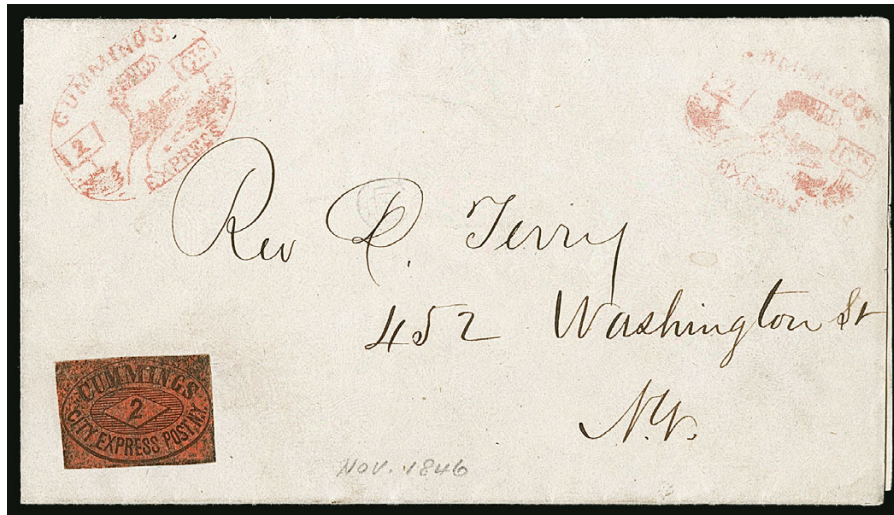 CUMMINGS.
2 CTS
EXPRESS
CUMMINGS.
2 CTS
EXPRESS
Rev D. Terry
452 Washington St
N.Y.
CUMMINGS
2
CITY EXPRESS POST, N.Y.
NOV. 1846